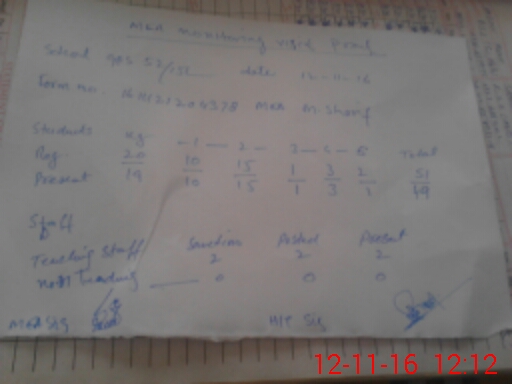 MEA monitoring visit proof
School GPS 52/15L date 12-11-16
Form no. MEA M. Sharif
Students Kg 1 2 3 5 Total
Reg. 20 10 15 1 3 2 51
Present 19 10 15 1 3 49
Staff
Sanction Posted Present
Teaching Staff 2 2 2
Non Teaching 0 0 0
MEA Sig H/T Sig
12-11-16 12:12